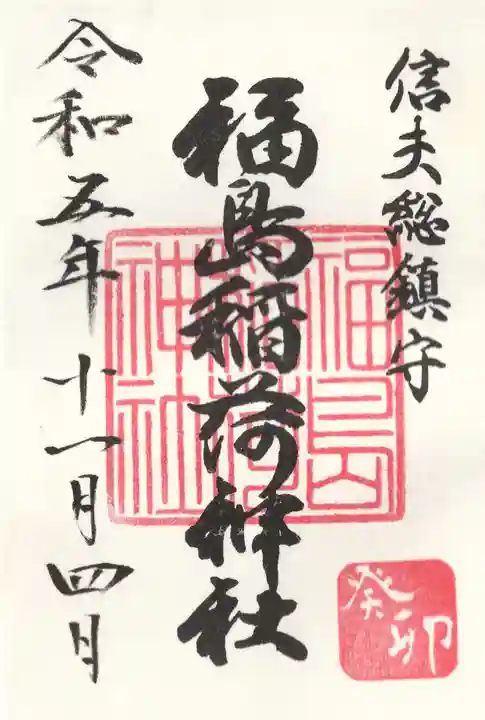 信夫総鎮守
福島稲荷神社
福島稲荷神社
令和五年十一月四月
癸卯